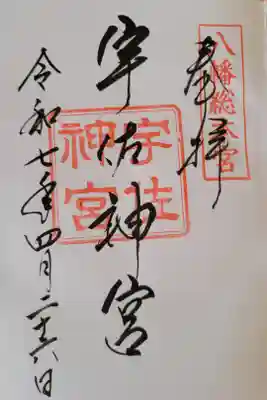 奉拝
八幡総本宮
宇佐神宮
宇佐神宮
令和七年四月二十六日